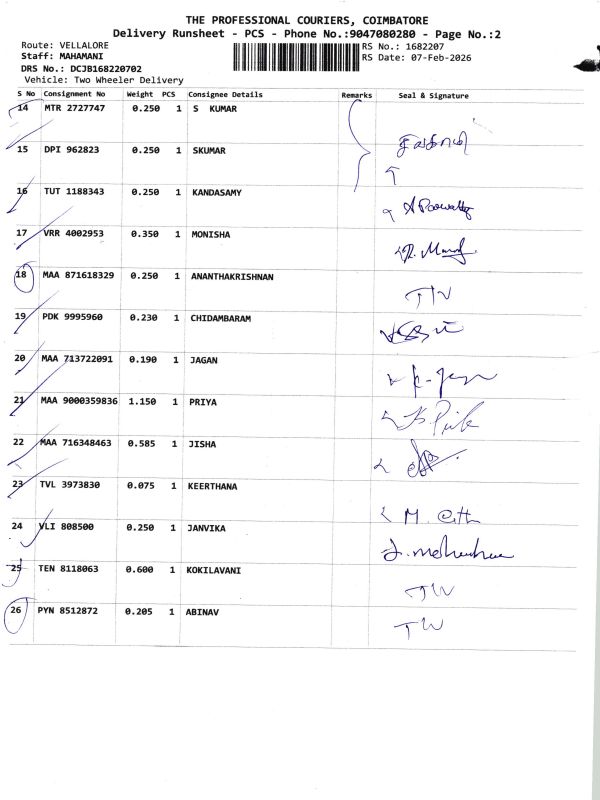 THE PROFESSIONAL COURIERS, COIMBATORE
Delivery Runsheet - PCS - Phone No.:9047080280 - Page No.:2
Route: VELLALORE
Staff: MAHAMANI
DRS No.: DCJB168220702
Vehicle: Two Wheeler Delivery
RS No.: 1682207
RS Date: 07-Feb-2026
S No Consignment No Weight PCS Consignee Details Remarks Seal & Signature
14 MTR 2727747 0.250 1 S KUMAR
15 DPI 962823 0.250 1 SKUMAR
16 TUT 1188343 0.250 1 KANDASAMY
17 VRR 4002953 0.350 1 MONISHA
18 MAA 871618329 0.250 1 ANANTHAKRISHNAN
19 PDK 9995960 0.230 1 CHIDAMBARAM
20 MAA 713722091 0.190 1 JAGAN
21 MAA 9000359836 1.150 1 PRIYA
22 MAA 716348463 0.585 1 JISHA
23 TVL 3973830 0.075 1 KEERTHANA
24 VLI 808500 0.250 1 JANVIKA
25 TEN 8118063 0.600 1 KOKILAVANI
TW
26 PYN 8512872 0.205 1 ABINAV
TW